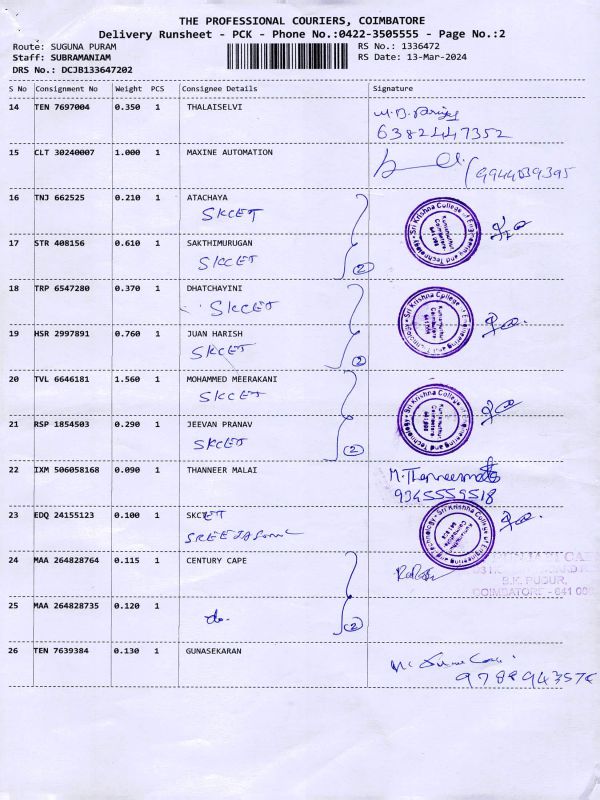 THE PROFESSIONAL COURIERS, COIMBATORE
Delivery Runsheet - PCK - Phone No.:0422-3505555 - Page No.:2
Route: SUGUNA PURAM RS No.: 1336472
Staff: SUBRAMANIAM RS Date: 13-Mar-2024
DRS No.: DCJB133647202
S No Consignment No Weight PCS Consignee Details Signature
14 TEN 7697004 0.350 1 THALAISELVI
6382447352
15 CLT 30240007 1.000 1 MAXINE AUTOMATION
9944039395
16 TNJ 662525 0.210 1 ATACHAYA
SKCET
17 STR 408156 0.610 1 SAKTHIMURUGAN
SKCET
2
Sri Krishna College of Engineering and Technology
Kuniamuthur Coimbatore 641 008
18 TRP 6547280 0.370 1 DHATCHAYINI
SKCET
19 HSR 2997891 0.760 1 JUAN HARISH
SKCET
2
Sri Krishna College of Engineering and Technology
Kuniamuthur Coimbatore 641 008
20 TVL 6646181 1.560 1 MOHAMMED MEERAKANI
SKCET
21 RSP 1854503 0.290 1 JEEVAN PRANAV
SKCET
2
Sri Krishna College of Engineering and Technology
Kuniamuthur Coimbatore 641 008
22 IXM 506058168 0.090 1 THANNEER MALAI
9345559518
23 EDQ 24155123 0.100 1 SKCET
Sri Krishna College of Engineering and Technology
Kuniamuthur Coimbatore 641 008
24 MAA 264828764 0.115 1 CENTURY CAPE
B.K. PUDUR,
COIMBATORE - 641 008
25 MAA 264828735 0.120 1
do.
2
26 TEN 7639384 0.130 1 GUNASEKARAN
9788943576